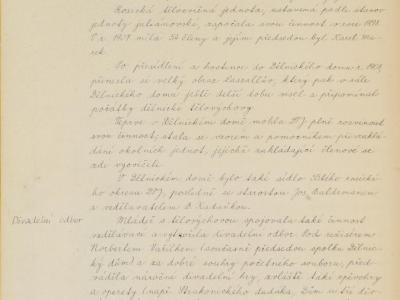 Rosická tělocvičná jednota, ustavená podle stanov
jednoty juliánovské, započala svou činnost v roce 1898.
V r. 1904 měla 56 členy a jejím předsedou byl Karel
Po přesídlení a hostince do Dělnického domu r. 1908,
přenesla se velký obraz Lassallův, který pak v sále
Dělnického domu ještě delší dobu visel a připomínal
počátky dělnické tělovýchovy.
Teprve v Dělnickém domě mohla DTJ plně rozvinout
svou činnost, stala se vzorem a pomocníkem při zaklá-
dání okolních jednot, jejichž zakládající členové se
zde vycvičili.
V Dělnickém domě bylo také sídlo rosického
okresu DTJ, posledně se starostou Jos. Valdemanem
a vzdělavatelem B. Kalaškou.
Divadelní odbor
Mládež s tělovýchovou spojovala také činnost
vzdělávací a vytvořila divadelní odbor. Pod režisérem
Norbertem Vašíčkem (současně předsedou spolku Dělnic-
ký dům) a za dobré souhry početného souboru, před-
váděla náročné divadelní hry, zvláště také zpěvohry
a operety (např. Strakonického dudáka, Dům u tří děv-